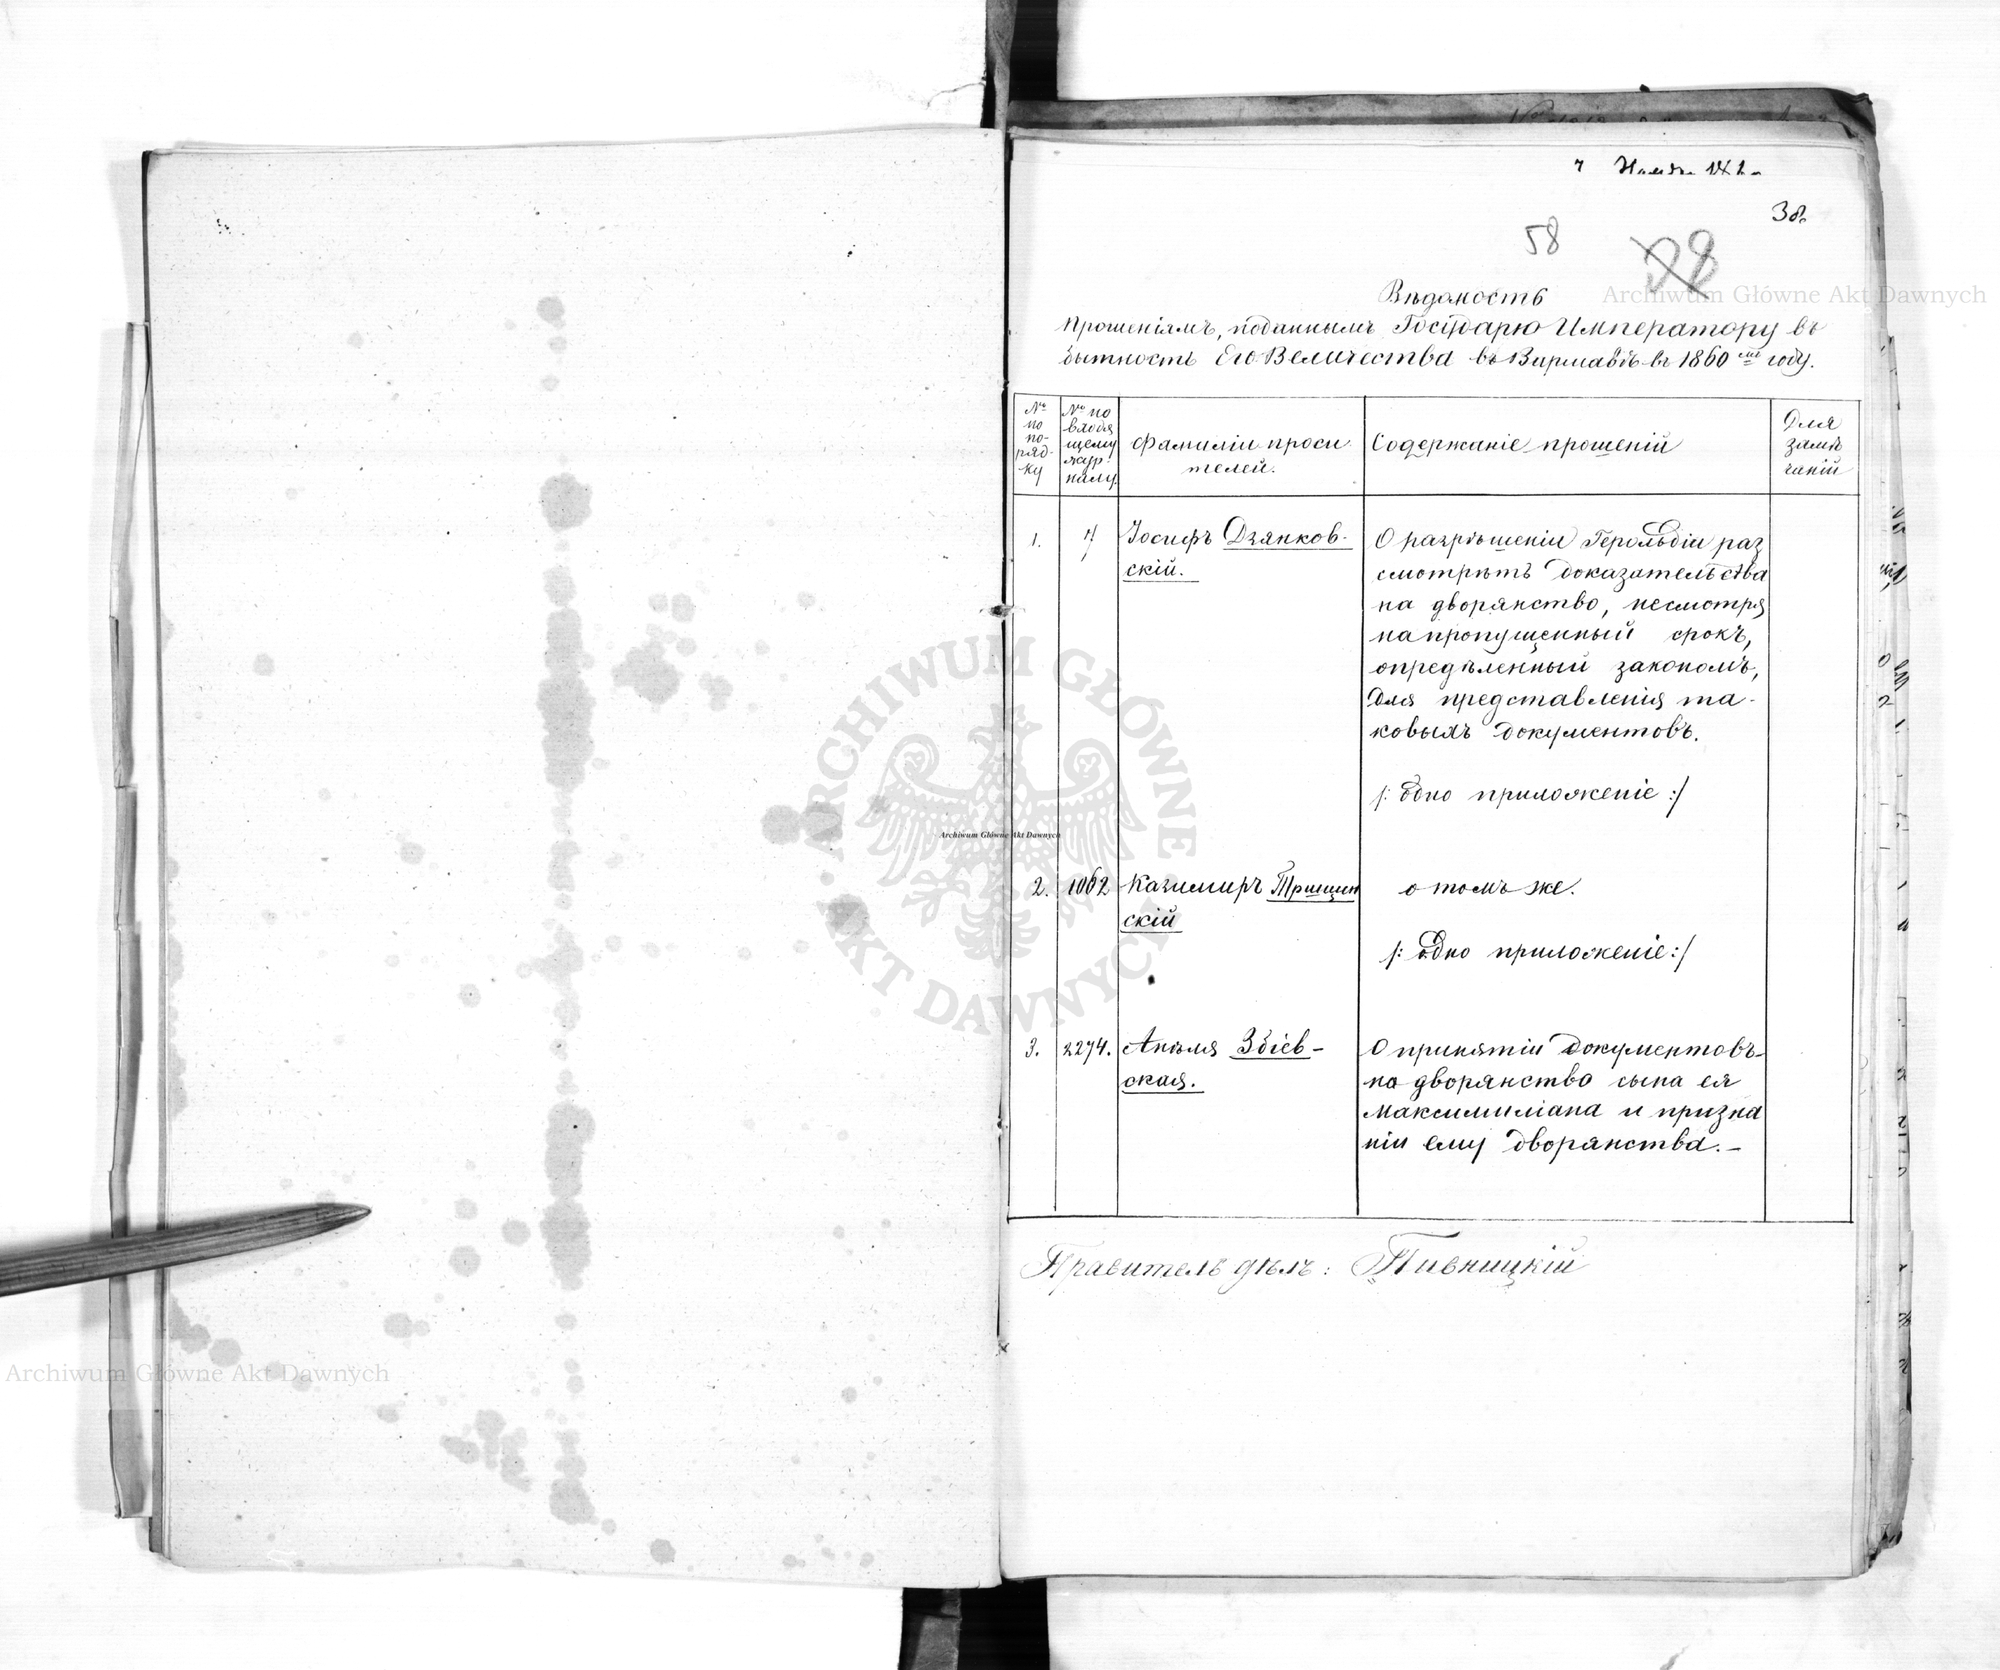 38.
58
98
Archiwum Główne Akt Dawnych
Вѣдомость
прошеніямъ, поданнымъ Государю Императору въ
бытность Его Величества въ Варшавѣ въ 1860 мъ году.
№ по порядку
№ по входящему журналу.
Фамиліи просителей.
Содержаніе прошеній
Для замѣчаній
1.
4
Іосифъ Дзянков-
скій.
О разрѣшеніи Герольдіи раз
смотрѣть доказательства
на дворянство, несмотря
на пропущенный срокъ,
опредѣленный закономъ,
для представленія та-
ковыхъ документовъ.
/: одно приложеніе :/
Archiwum Główne Akt Dawnych
ARCHIWUM GŁÓWNE AKT DAWNYCH
2.
1062
Казимиръ
скій
о томъ же.
/: одно приложеніе :/
3.
2274.
Анѣля Збіев-
ская.
О принятіи документовъ
на дворянство сына ея
Максимиліана и призна
ніи ему дворянства.–
Правитель дѣлъ: Пивницкій
Archiwum Główne Akt Dawnych